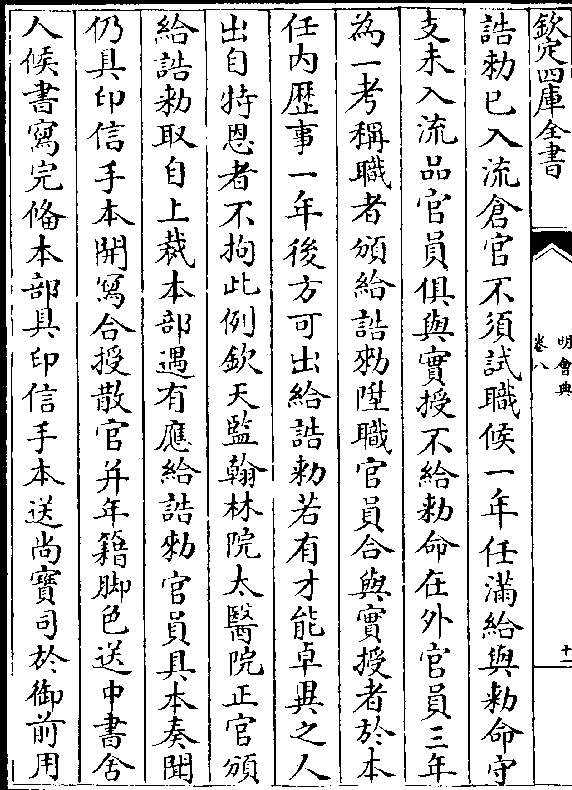 欽定四庫全書
明會典
卷八
十一
誥勅已入流倉官不須試職候一年任滿給與勅命守
支未入流品官員俱與實授不給勅命在外官員三年
為一考稱職者頒給誥勅陞職官員合與實授者於本
任内歴事一年後方可出給誥勅若有才能卓異之人
出自特恩者不拘此例欽天監翰林院太醫院正官頒
給誥勅取自上裁本部遇有應給誥勅官員具本奏聞
仍具印信手本開寫合授散官并年籍脚色送中書舍
人候書寫完備本部具印信手本送尚寶司於御前用